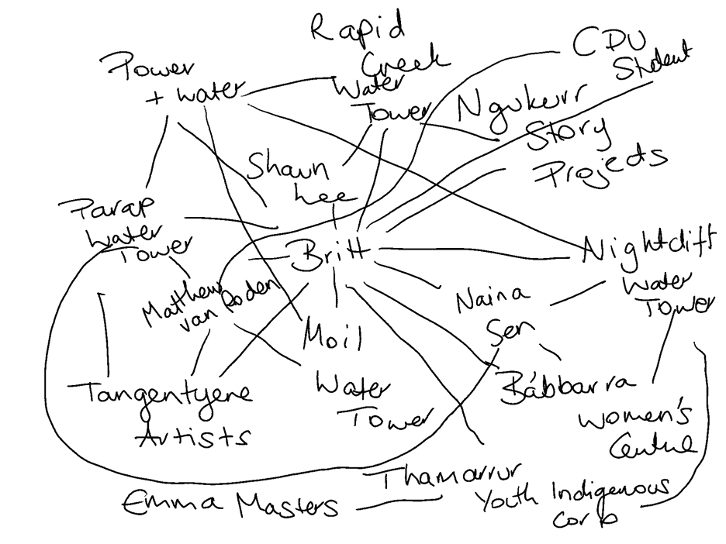 Rapid
Creek
Water
Tower
Power
+ water
CDU
Student
Ngukurr
Story
Projects
Shaun
Lee
Parap
Water
Tower
Britt
Nightcliff
Water
Tower
Matthew
van Roden
Naina
Sen
Moil
Water
Tower
Tangentyene
Artists
Bábbarra
Women's
Centre
Thamarrur
Youth Indigenous
Corp
Emma Masters